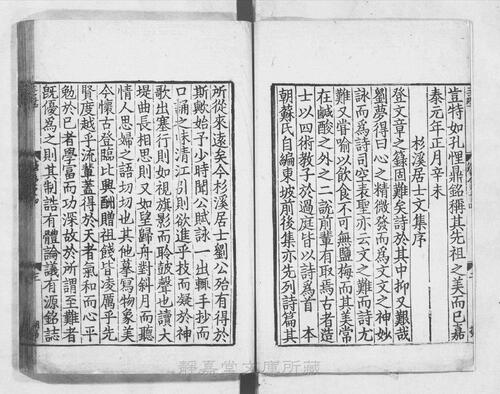 豈特如孔悝鼎銘稱其先祖之美而已嘉
泰元年正月辛未
杉溪居士文集序
登文章之籙固難矣詩於其中抑又艱哉
劉夢得曰心之精微發而為文文之神妙
詠而為詩司空表聖亦云文之難而詩尤
難又嘗喻以飲食不可無鹽梅而其美常
在鹹酸之外之二說前輩有取焉古者造
士以四術教子於過庭皆以詩為首 本
朝蘇氏自編東坡前後集亦先列詩篇其
所從來遠矣今杉溪居士劉公殆有得於
斯歟始予少時聞公賦詠一出輒手抄而
口誦之味清江引則欲進乎技而凝於神
歌出塞行則如視旗影而聆鼓聲也讀大
堤曲長相思則又如望歸舟對斜月而聽
情人思婦之語切切也其他摹寫物象美
今懷古登臨比興酬贈祖餞皆凌厲乎先
賢度越乎流輩蓋得於天者氣和而心平
勉於己者學富而功深故於所謂至難者
既優為之則其制誥有體論議有源銘誌
靜嘉堂文庫所藏